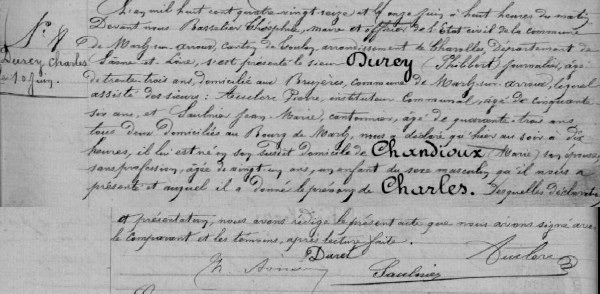 N° 8
Durey Charles
du 10 juin.
L'an mil huit cent quatre vingt seize et onze juin à huit heures du matin
Devant nous Basselier Théophile, maire et officier de l'Etat civil de la commune
de Marly-sur-Arroux, canton de Toulon, arrondissement de Charolles, Département de
Saône-et-Loire, s'est présenté le sieur Durey (Philibert) journalier, âgé
de trente trois ans, domicilié aux Bruyères, commune de Marly-sur-Arroux, lequel
assisté des sieurs: Auclerc Pierre, instituteur communal, âgé de cinquante
six ans, et Saulnier Jean Marie, cantonnier, âgé de quarante-trois ans,
tous deux domiciliés au Bourg de Marly, nous a déclaré qu'hier au soir à dix
heures, il lui est né en son susdit domicile de Chandioux (Marie) son épouse,
sans profession, âgée de vingt en ans, un enfant du sexe masculin qu'il nous a
présenté et auquel il a donné le prénom de Charles. Lesquelles déclaration
et présentation, nous avons rédigé le présent acte que nous avons signé avec
le comparant et les témoins, après lecture faite.
Duret
Saulnier
Auclerc